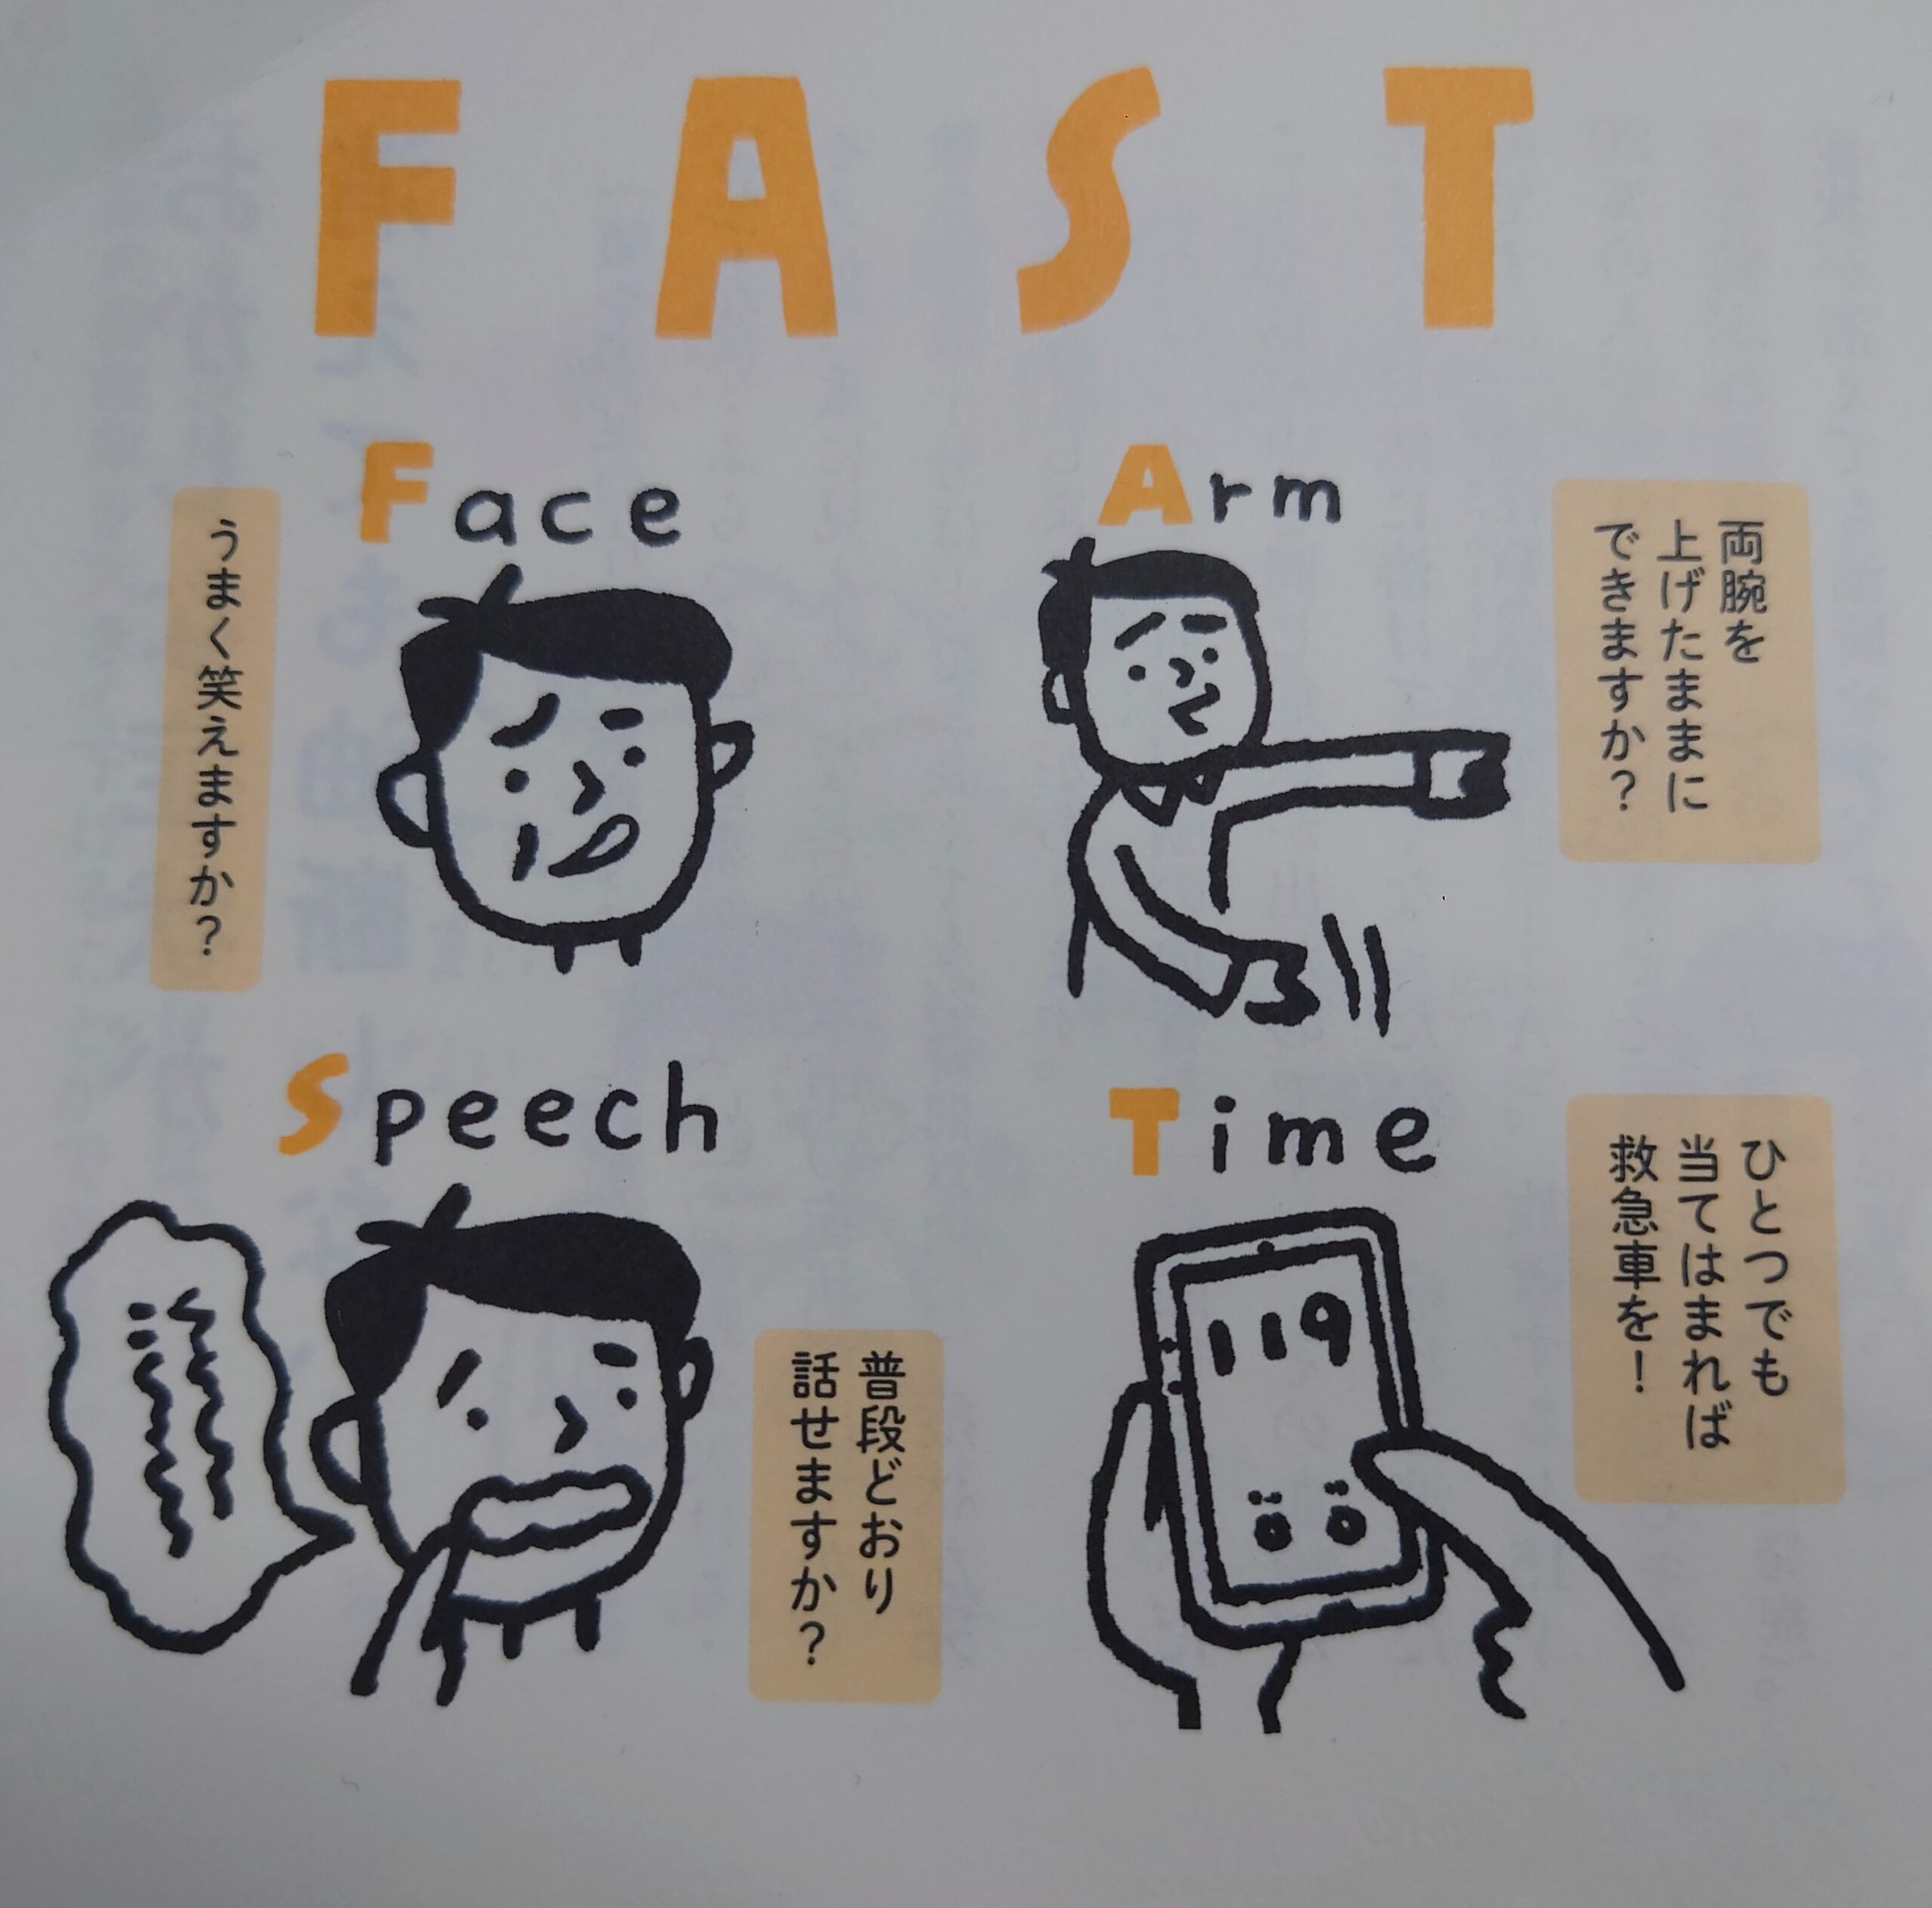 FAST
Face
うまく笑えますか？
Arm
両腕を
上げたままに
できますか？
Speech
普段どおり
話せますか？
Time
ひとつでも
当てはまれば
救急車を！
119